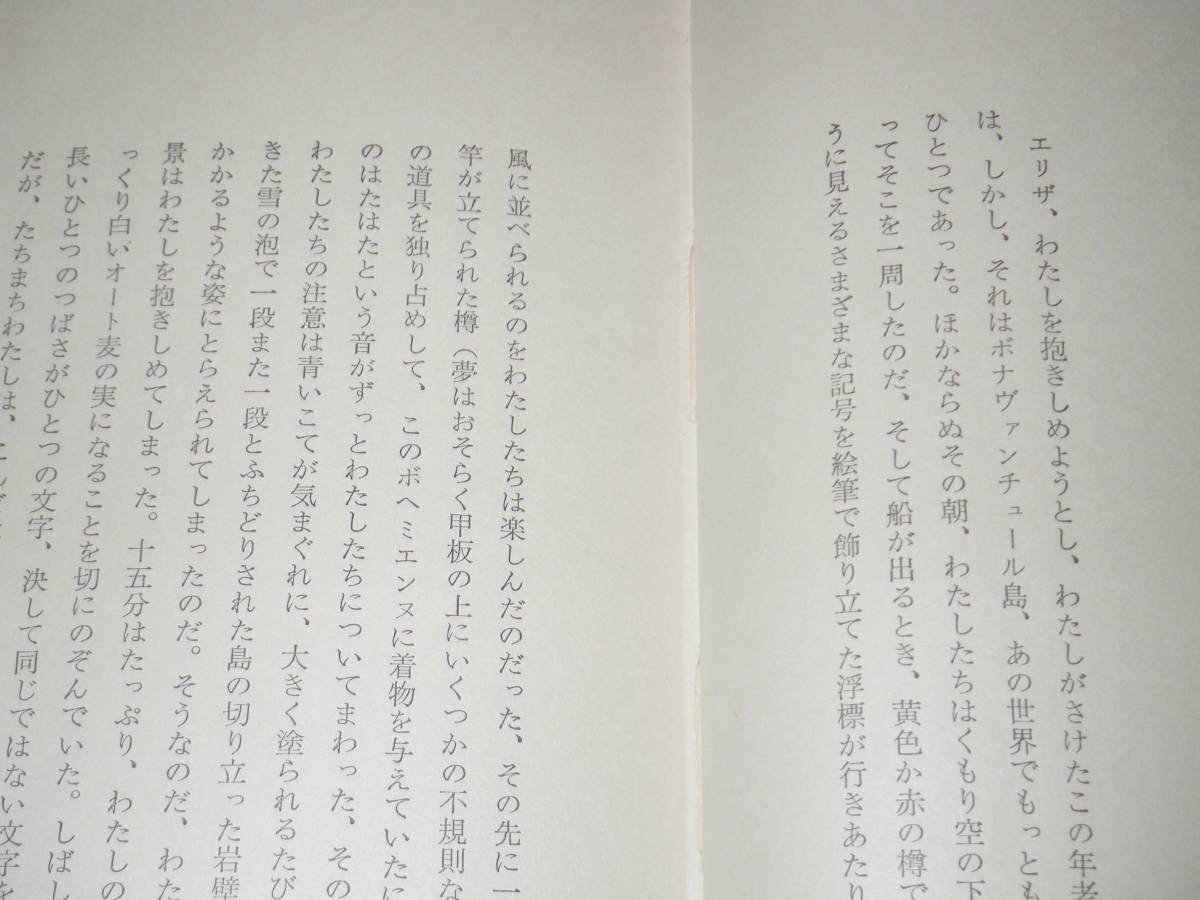 エリザ、わたしを抱きしめようとし、わたしがさけたこの年老
は、しかし、それはボナヴァンチュール島、あの世界でもっとも
ひとつであった。ほかならぬその朝、わたしたちはくもり空の下
ってそこを一周したのだ、そして船が出るとき、黄色か赤の樽で
うに見えるさまざまな記号を絵筆で飾り立てた浮標が行きあたり
風に並べられるのをわたしたちは楽しんだのだった、その先に一
竿が立てられた樽（夢はおそらく甲板の上にいくつかの不規則な
の道具を独り占めして、このボヘミエンヌに着物を与えていたに
のはたはたという音がずっとわたしたちについてまわった、その
わたしたちの注意は青いこてが気まぐれに、大きく塗られるたび
きた雪の泡で一段また一段とふちどりされた島の切り立った岩壁
かかるような姿にとらえられてしまったのだ。そうなのだ、わた
景はわたしを抱きしめてしまった。十五分はたっぷり、わたしの
っくり白いオート麦の実になることを切にのぞんでいた。しばし
長いひとつのつばさがひとつの文字、決して同じではない文字を
だが、たちまちわたしは、